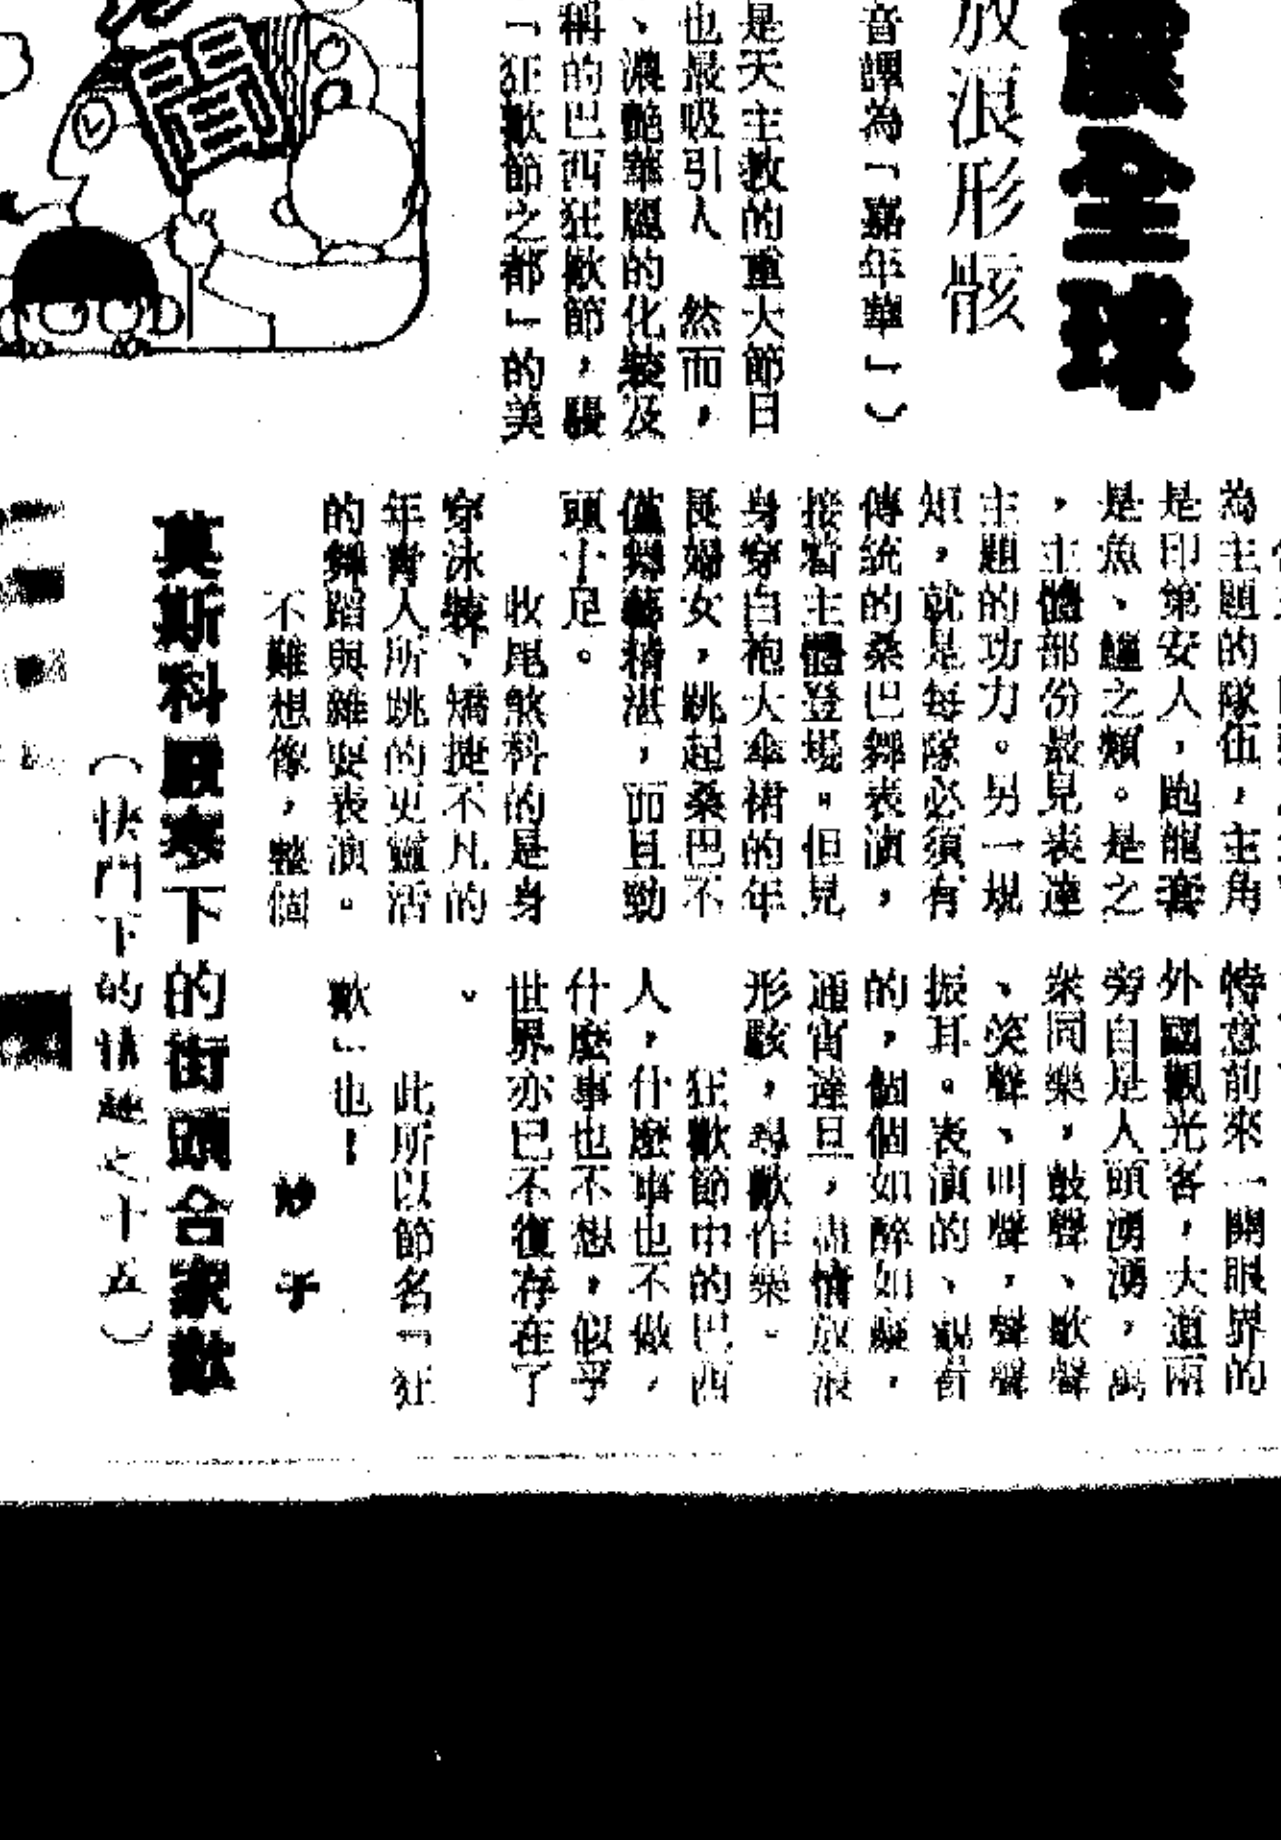 全球
放浪形骸
音譯為「嘉年華」)
是天主教的重大節日
也最吸引人 然而，
、濃艷華麗的化裝及
稱的巴西狂歡節，
「狂歡節之都」的美
聞
為主題的隊伍，主角
是印第安人，跑龍套
是魚、鱷之類。是之
，主體部份最見表達
主題的功力。另一規
矩，就是每隊必須有
傳統的桑巴舞表演，
接着主體登場。但見
身穿白袍大傘裙的年
長婦女，跳起桑巴不
僅舞藝精湛，而且勁
頭十足。
收尾煞科的是身
穿泳裝、矯捷不凡的
年青人所跳的更靈活
的舞蹈與雜耍表演。
不難想像，整個
特意前來一開眼界的
外國觀光客，大道兩
旁自是人頭湧湧，萬
眾同樂，鼓聲、歌聲
、笑聲、叫聲，聲聲
振耳。表演的、觀看
的，個個如醉如癡，
通宵達旦，盡情放浪
形骸，尋歡作樂。
狂歡節中的巴西
人，什麼事也不做，
什麼事也不想，似乎
世界亦已不復存在了
。
此所以節名「狂
歡」也！
妙于
莫斯科嚴寒下的街頭合家歡
(快門下的情趣之十五)